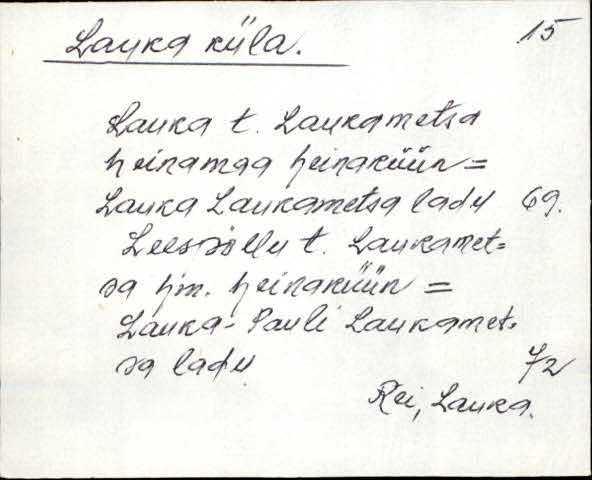 Lauka küla. 15
Lauka t. Laukametsa
heinamaa heinaküün =
Lauka Laukametsa ladu 69.
t. Laukamet=
sa hm. heinaküün =
Lauka-Pauli Laukamet=
sa ladu 72
Rei, Lauka.